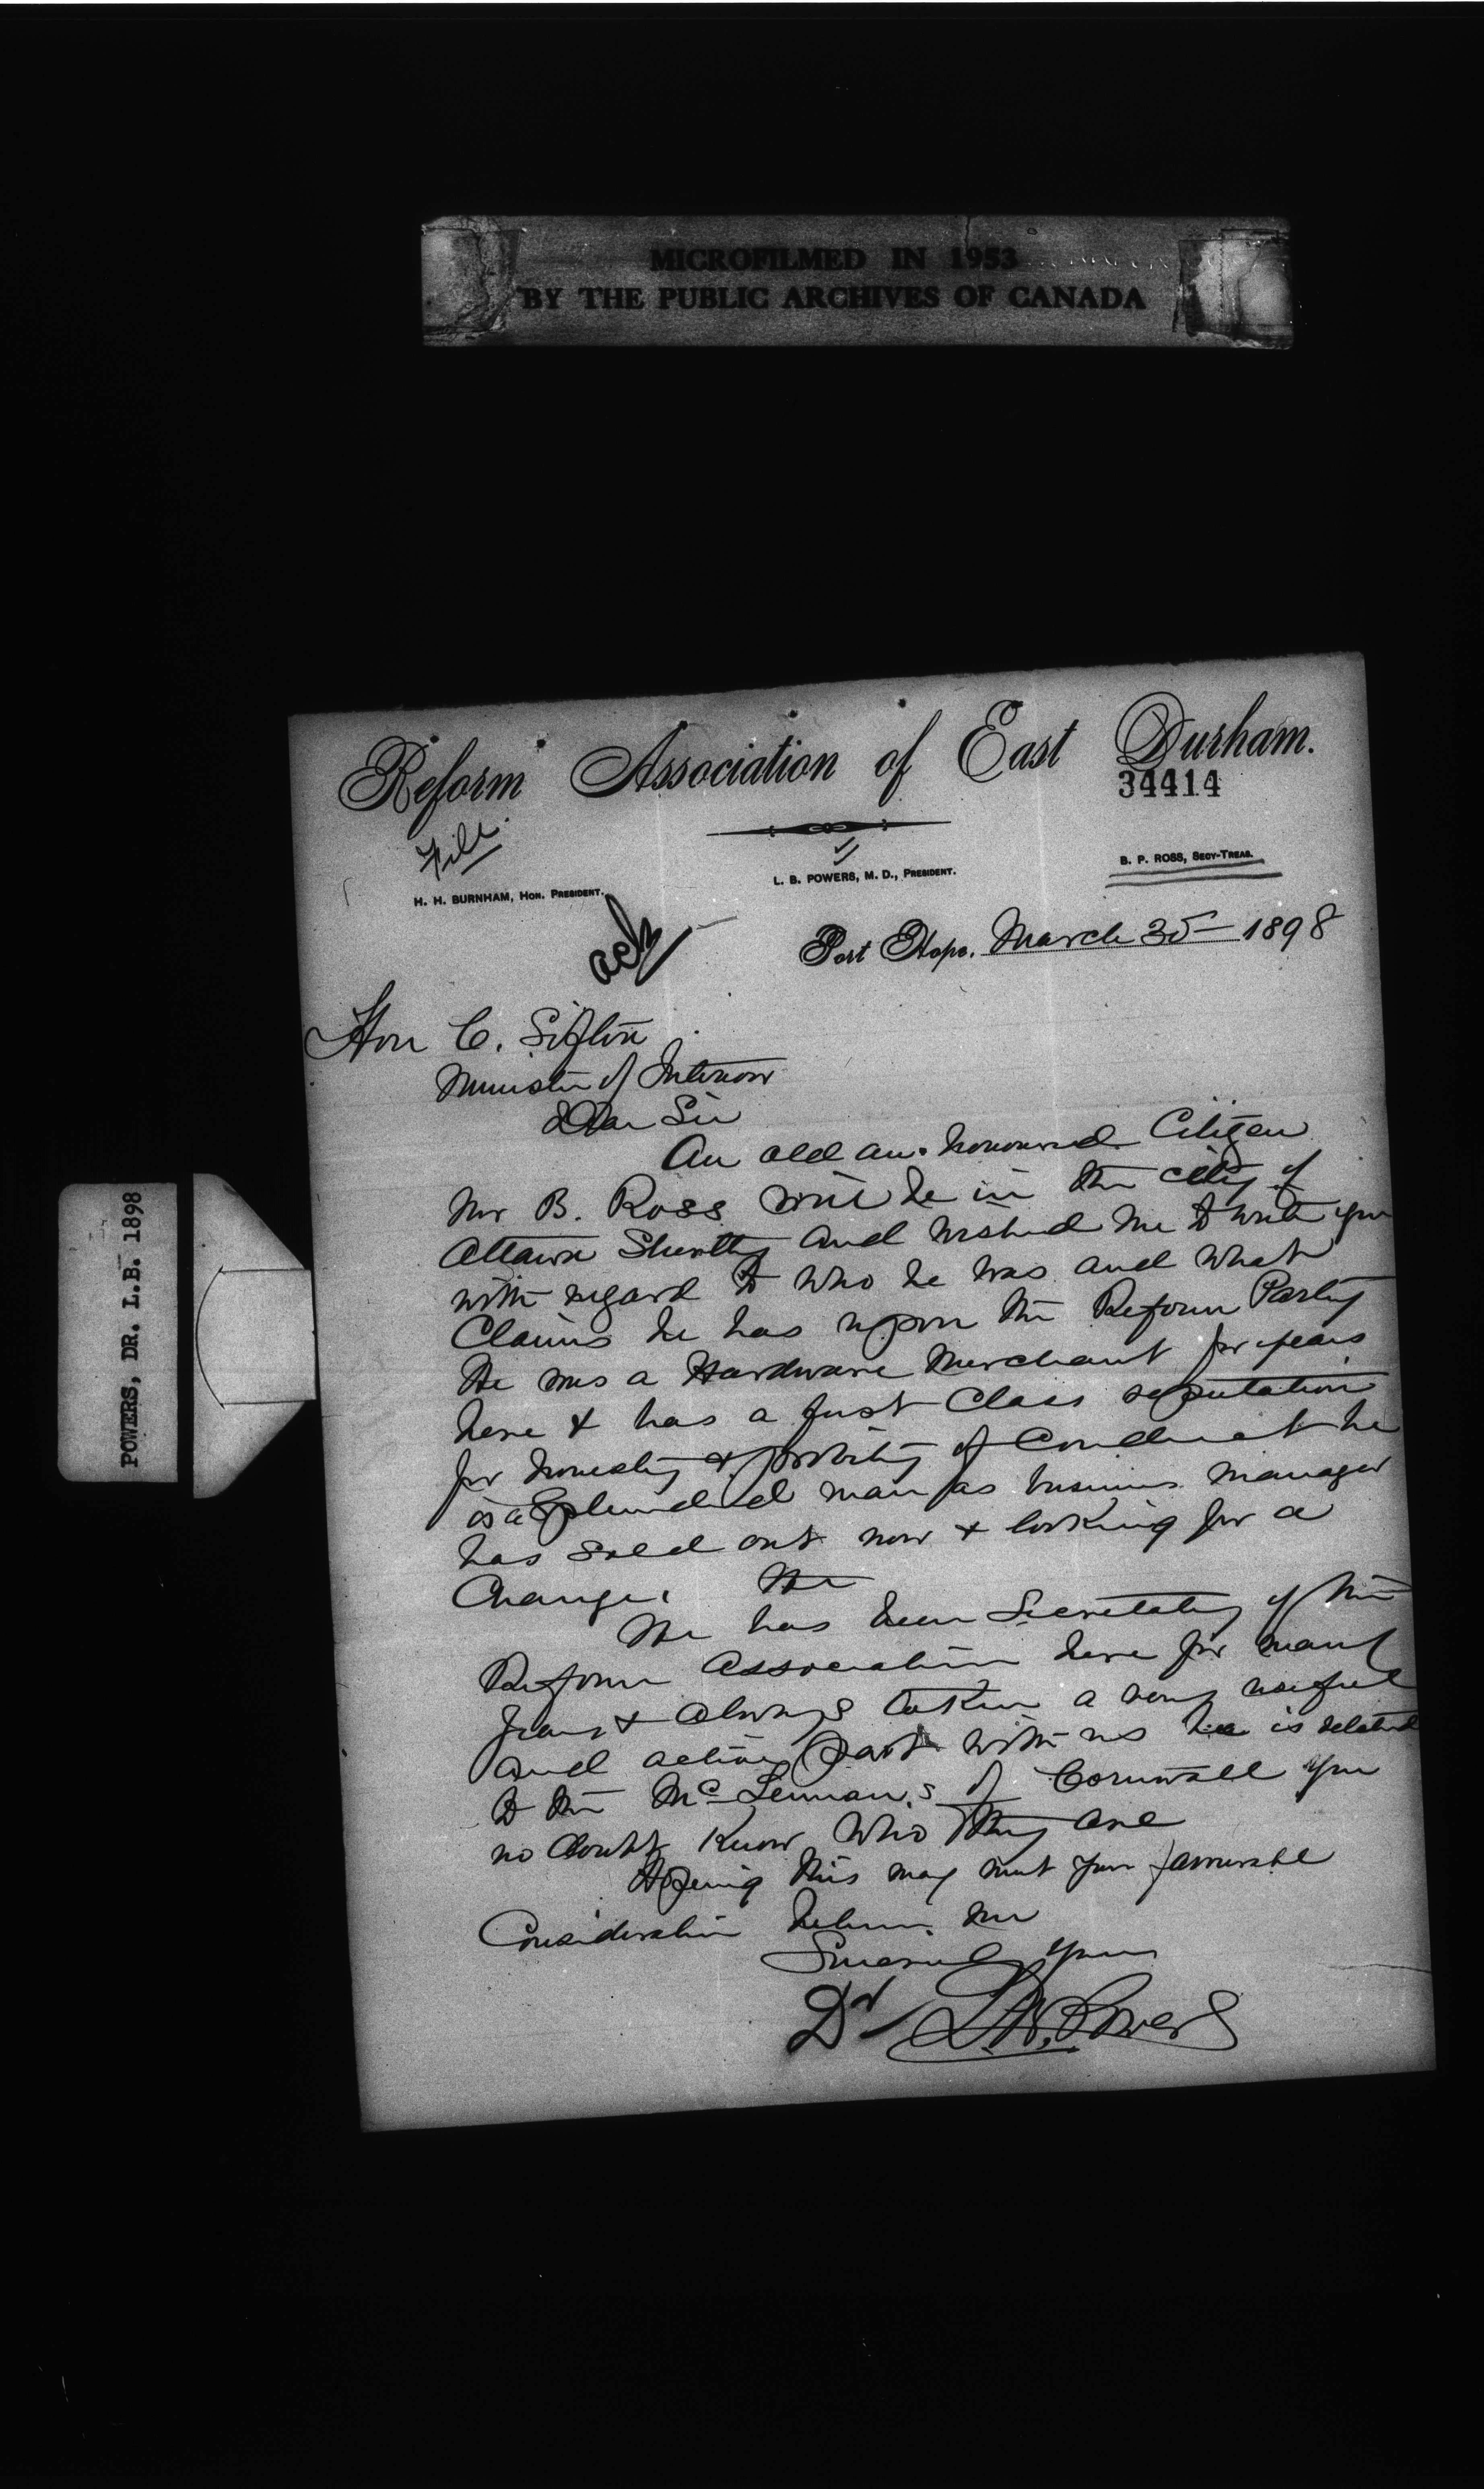 MICROFILMED IN 1953
BY THE PUBLIC ARCHIVES OF CANADA
POWERS, DR. L.B. 1898
Reform Association of East Durham.
34414
File.
H. H. BURNHAM, HON. PRESIDENT.
L. B. POWERS, M. D., PRESIDENT.
B. P. ROSS, SECY-TREAS.
ack
Port Hope, March 1898
Hon C. Sifton
Minister of Interior
Dear Sir
An old an. honoured Citizen
Mr B. Ross will be in the city of
Ottawa Shortly and wished me to write you
with regard to who he was and what
Claims he has upon the Reform Party
He was a Hardware Merchant for years
here & has a first Class reputation
for honesty & probity of Conduct he
is a Splendid man as business manager
has sold out now & looking for a
Change. He
He has been Secretaty of the
Reform Association here for many
years & always taken a very useful
and active part with us he is related
to the McLennan,s of Cornwall you
no doubt Know Who They are
Hoping this may meet your favourable
Consideration believe me
Sincerely Yours
Dr L.B. Powers